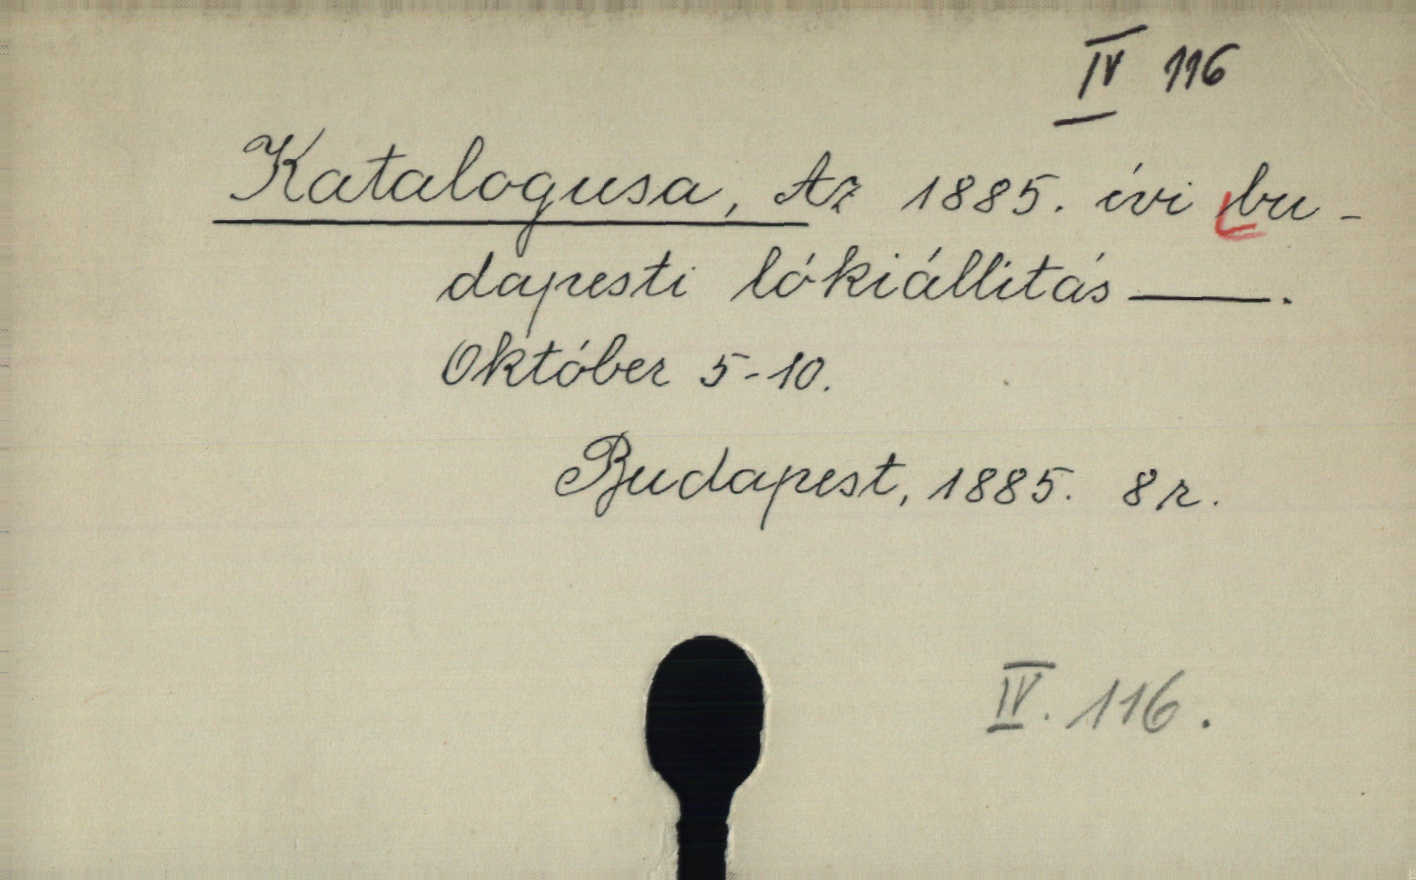 IV 116
Katalogusa, Az 1885. évi bu-
dapesti lókiállitás ———.
Október 5-10.
Budapest, 1885. 8r.
IV. 116.